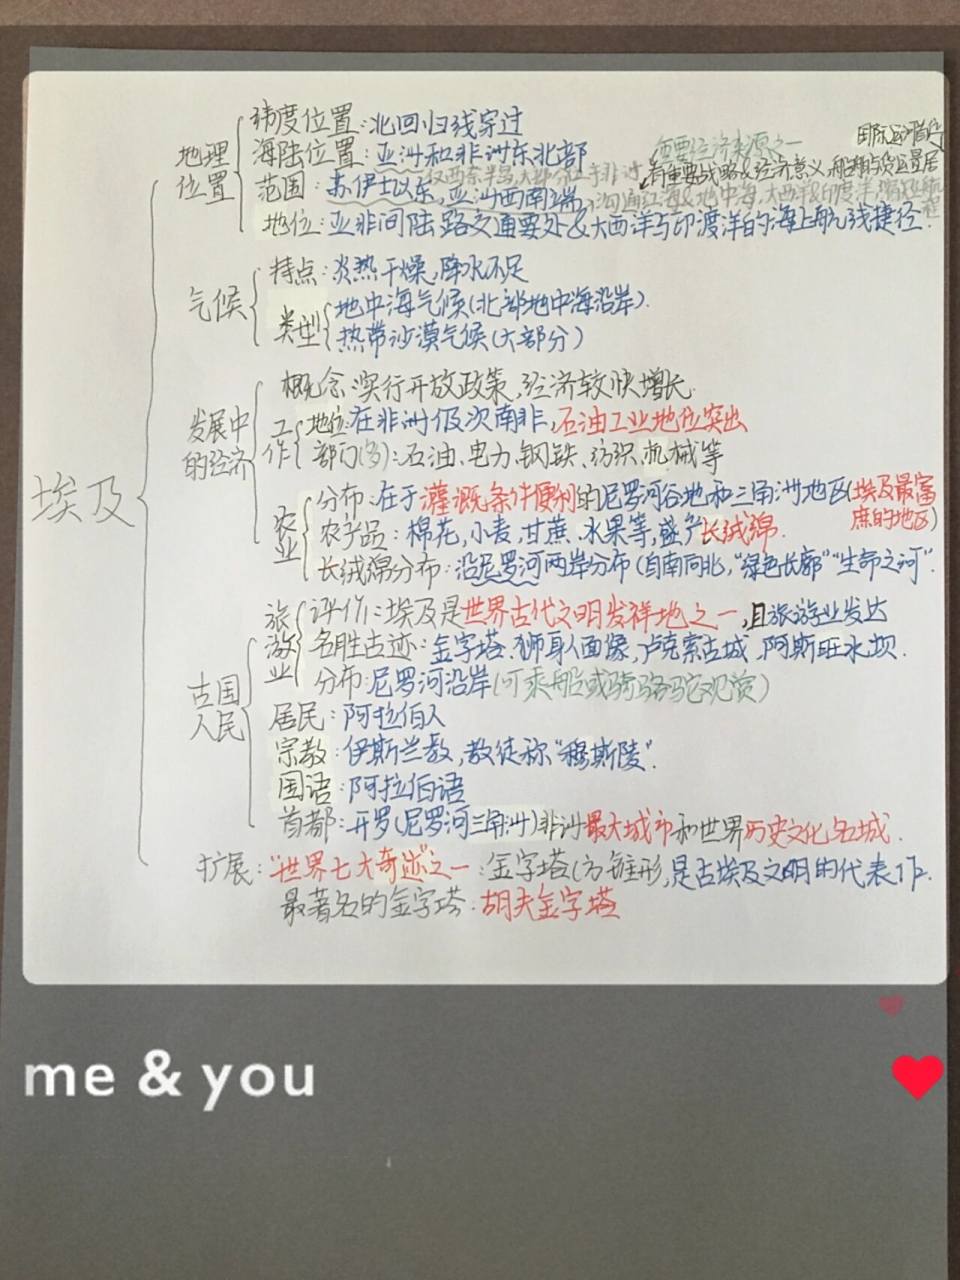 埃及
地理
位置
纬度位置:北回归线穿过
海陆位置:亚洲和非洲东北部
重要经济来源之一
范围:苏伊士以东,亚洲西南端,
仅西奈半岛,大部分位于非洲
有重要战略&经济意义,船舶数与货运量居
国际运河首位
沟通红海&地中海,大西洋&印度洋
地位:亚非间陆路交通要处&大西洋与印度洋的海上航线捷径.
气候
特点:炎热干燥,降水不足
类型
地中海气候(北部地中海沿岸).
热带沙漠气候(大部分)
发展中
的经济
概念:实行开放政策,经济较快增长.
工
作
地位:在非洲仅次南非,石油工业地位突出
部门(多):石油、电力、钢铁、纺织、机械等
农
业
分布:在于灌溉条件便利的尼罗河谷地和三角洲地区(埃及最富
庶的地区)
农产品:棉花,小麦,甘蔗、水果等,盛产长绒绵.
长绒绵分布:沿尼罗河两岸分布(自南向北,“绿色长廓”“生命之河”.
古国
人民
旅
游
业
评价:埃及是世界古代文明发祥地之一,且旅游业发达
名胜古迹:金字塔、狮身人面像,卢克索古城、阿斯旺水坝.
分布:尼罗河沿岸(可乘船或骑骆驼观赏)
居民:阿拉伯人
宗教:伊斯兰教,教徒称“穆斯陵”.
国语:阿拉伯语
首都:开罗(尼罗河三角洲)非洲最大城市和世界历史文化名城.
扩展:“世界七大奇迹”之一:金字塔(方锥形,是古埃及文明的代表作.
最著名的金字塔:胡夫金字塔
me & you